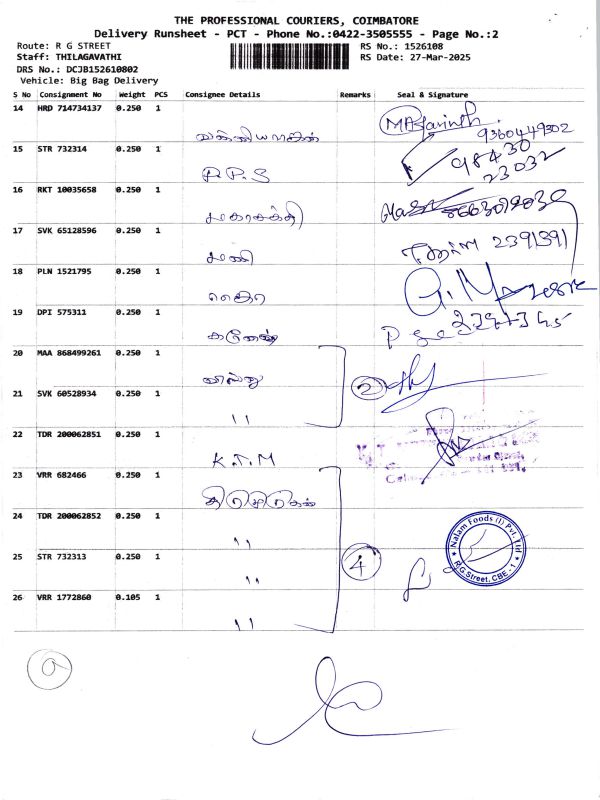 THE PROFESSIONAL COURIERS, COIMBATORE
Delivery Runsheet - PCT - Phone No.:0422-3505555 - Page No.:2
Route: R G STREET
Staff: THILAGAVATHI
DRS No.: DCJB152610802
Vehicle: Big Bag Delivery
RS No.: 1526108
RS Date: 27-Mar-2025
S No Consignment No Weight PCS Consignee Details Remarks Seal & Signature
14 HRD 714734137 0.250 1
9360449302
15 STR 732314 0.250 1
P.P.S
98430
23032
16 RKT 10035658 0.250 1
மகாசக்தி
17 SVK 65128596 0.250 1
மணி
2391391
18 PLN 1521795 0.250 1
19 DPI 575311 0.250 1
கணேஷ்
20 MAA 868499261 0.250 1
2
21 SVK 60528934 0.250 1
"
22 TDR 200062851 0.250 1
K.T.M
23 VRR 682466 0.250 1
24 TDR 200062852 0.250 1
"
25 STR 732313 0.250 1
"
4
Nalam Foods (I) Pvt. Ltd
R.G Street, CBE - 1
26 VRR 1772860 0.105 1
"